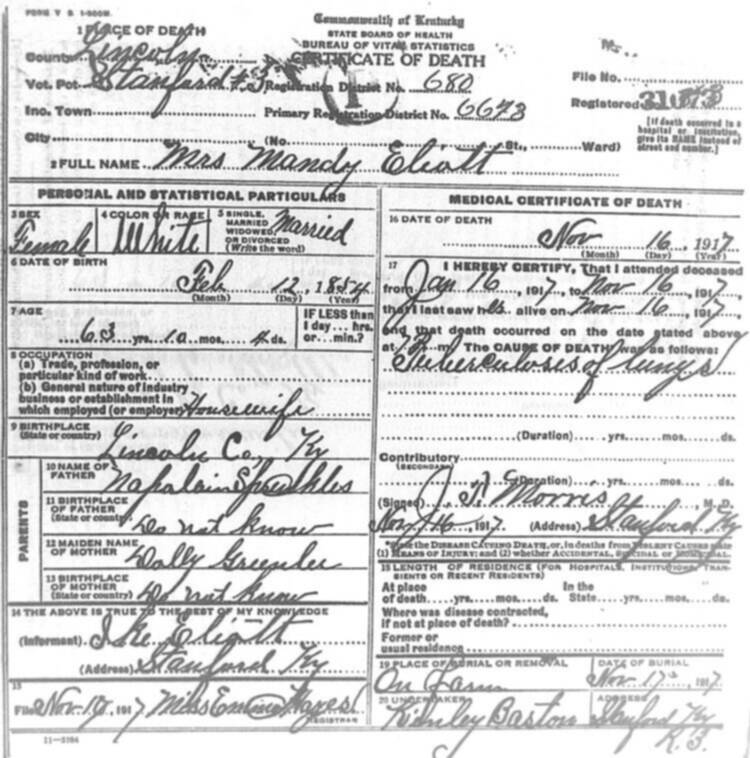 FORM V. S. 1-500M.
Commonwealth of Kentucky
STATE BOARD OF HEALTH
BUREAU OF VITAL STATISTICS
CERTIFICATE OF DEATH
1 PLACE OF DEATH
County Lincoln
Vot. Pct. Stanford #3 Registration District No. 680
File No.
Inc. Town Primary Registration District No. 6673
Registered
[If death occurred in a hospital or institution, give its NAME instead of street and number.]
City (No. St., Ward)
2 FULL NAME Mrs Mandy Eliott
PERSONAL AND STATISTICAL PARTICULARS
3 SEX Female
4 COLOR OR RACE White
5 SINGLE, MARRIED WIDOWED OR DIVORCED (Write the word) Married
6 DATE OF BIRTH
Feb 12, 1854
(Month) (Day) (Year)
7 AGE
63 yrs. 10 mos. 4 ds.
IF LESS than 1 day... hrs. or... min.?
8 OCCUPATION
(a) Trade, profession, or
particular kind of work
(b) General nature of industry
business or establishment in
which employed (or employer) Housewife
9 BIRTHPLACE
(State or country) Lincoln Co, Ky
PARENTS
10 NAME OF
FATHER
11 BIRTHPLACE
OF FATHER
(State or country) Do not know
12 MAIDEN NAME
OF MOTHER Dolly
13 BIRTHPLACE
OF MOTHER
(State or country) Do not know
14 THE ABOVE IS TRUE TO THE BEST OF MY KNOWLEDGE
(Informant) Ike Eliott
(Address) Stanford Ky
15
Filed Nov 1917 Miss Emma Hayes
REGISTRAR
11-3184
MEDICAL CERTIFICATE OF DEATH
16 DATE OF DEATH
Nov 16, 1917
(Month) (Day) (Year)
17 I HEREBY CERTIFY, That I attended deceased
from Jan 16 1917, to Nov 16 1917,
that I last saw her alive on Nov 10 1917,
and that death occurred on the date stated above
at m. The CAUSE OF DEATH was as follows:
Tuberculosis of lungs
(Duration) yrs. mos. ds.
Contributory
(SECONDARY)
(Duration) yrs. mos. ds.
(Signed) Morris, M. D.
Nov 16, 1917 (Address) Stanford Ky
*Use the DISEASE CAUSING DEATH, or, in deaths from VIOLENT CAUSES state
(1) MEANS OF INJURY; and (2) whether ACCIDENTAL, SUICIDAL or HOMICIDAL.
18 LENGTH OF RESIDENCE (FOR HOSPITALS, INSTITUTIONS, TRANSIENTS OR RECENT RESIDENTS)
At place of death yrs. mos. ds. In the State yrs. mos. ds.
Where was disease contracted,
if not at place of death?
Former or
usual residence
19 PLACE OF BURIAL OR REMOVAL
On Farm
DATE OF BURIAL
Nov 17, 1917
20 UNDERTAKER
Baston
ADDRESS
Stanford Ky